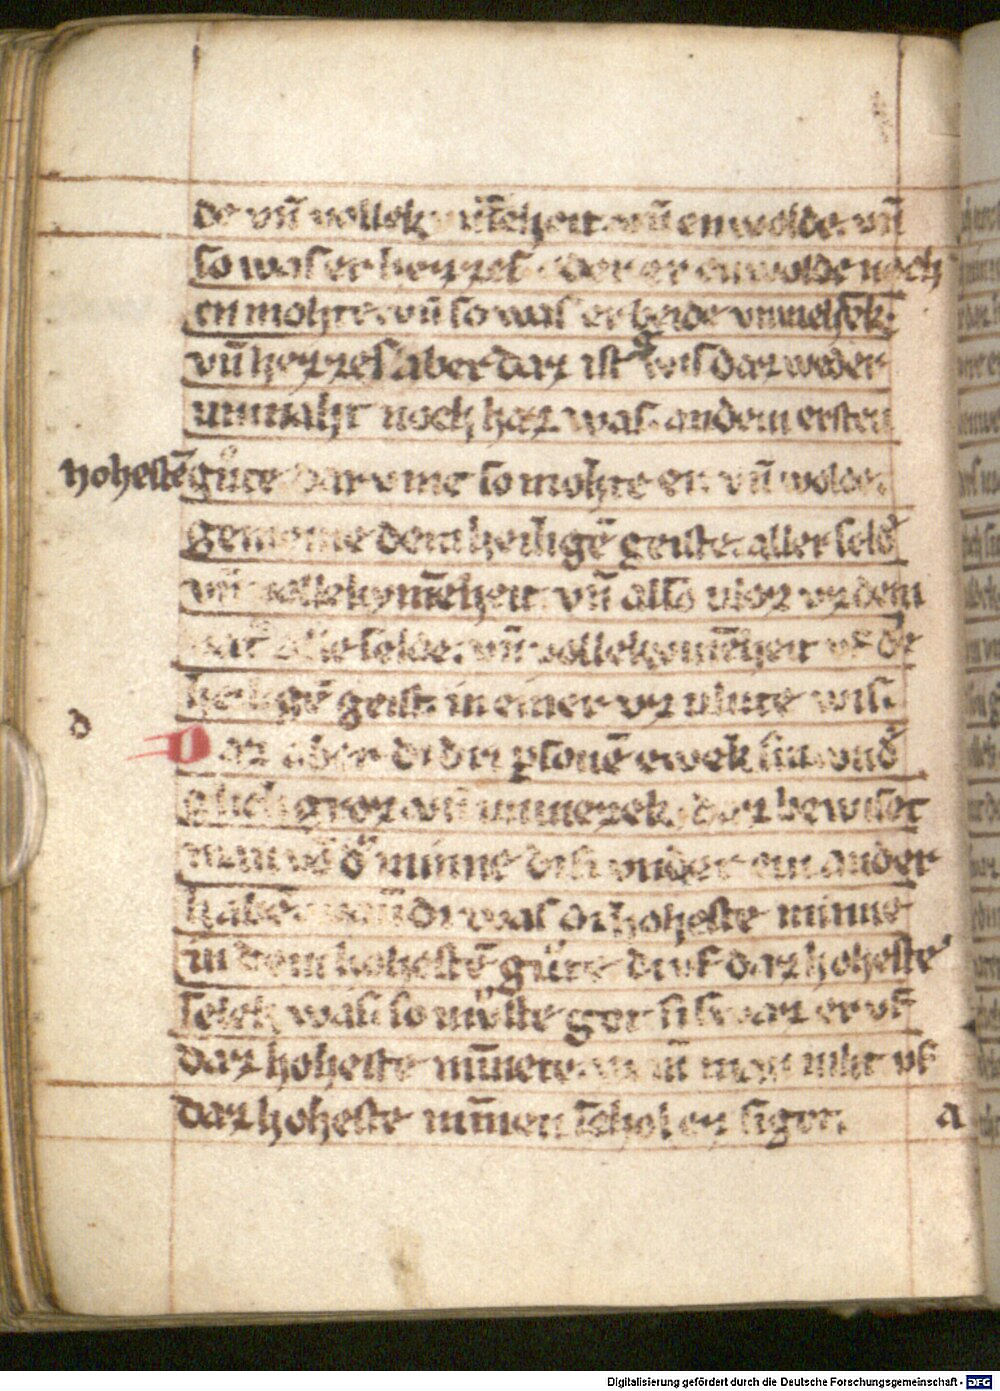 de vn̄ vollek mīcheit. vn̄ en wolde. vn̄
so was er hezzes oder er en wolde noch
en mohte. vn̄ so was er beide
vn̄ hezzes aber daz ist wis daz weder
unmaht noch haz was. an dem ersten
hohestē gůte dar vme so mohte er. vn̄ wolde.
gemeine dem heiligē geiste. aller seld
vn̄ vollekumēheit. vn̄ also vloz vz dem
alle selde. vn̄ vollekumēheit vf dē
heiligē geist. in einer vz vlute wis.
d
Daz aber di dri psonē ewek sin. vnd
glich groz. vn̄ daz bewiset
man vō der minne di si vnder ein ander
habēn wan di was di hoheste minne
in dem hohestē gůte di vf daz hoheste
selek was. so můste got si er vf
daz hoheste mīnete. man niht vf
daz hoheste mīnen schol ez si got.
a
Digitalisierung gefördert durch die Deutsche Forschungsgemeinschaft - DFG